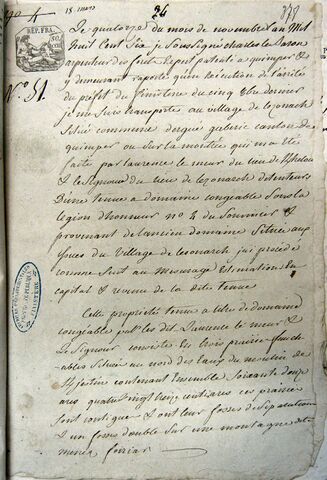 18 mars
36
378
4
RÉP. FRA.
N.° 51.
Le quatorze du mois de novembre an mil
huit cent six je soussigné charles Le Baron
arpenteur des forets Expert patenté a quimper &
y demeurant raporte qu'en Exécution de l'arrêté
du préfet du finistere du cinq dernier
je me suis transporté au village de Lezonarch
Situé commune dergue gaberic canton de
quimper ou Sur la mo qui ma été
faite par laurence le meur du lieu de
& le Signour du lieu de Lezonarch détenteurs
D'une tenue a domaine congeable Sous la
legion d'honneur n.° 4 du Sommier &
provenant de l'ancien domaine Située aux
du village de Lezonarch j'ai procédé
comme Suit au Mesurage Estimation En
capital & revenu de la dite tenue
Cette propriété tenue a titre de domaine
congeable par les dit Laurence le meur &
Le Signour consiste En trois prairies fauch
ables Située au nord des Eaux du moulin de
contenant Ensemble Soixante douze
ares quatre vingt treize centiares ces prairies
Sont contigue & ont leur fosses de Separation
& un fosses double Sur une montagne de